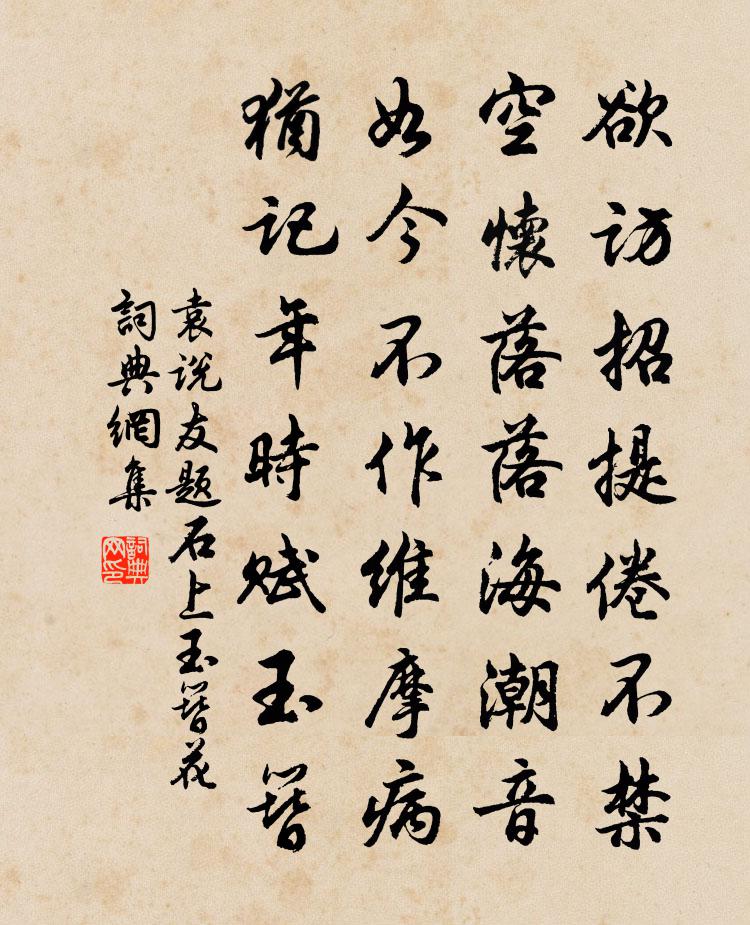 欲访招提倦不禁
空懷落落海潮音
如今不作維摩病
猶記年時赋玉簪
袁说友题石上玉簪花
詞典網集
詞典网印